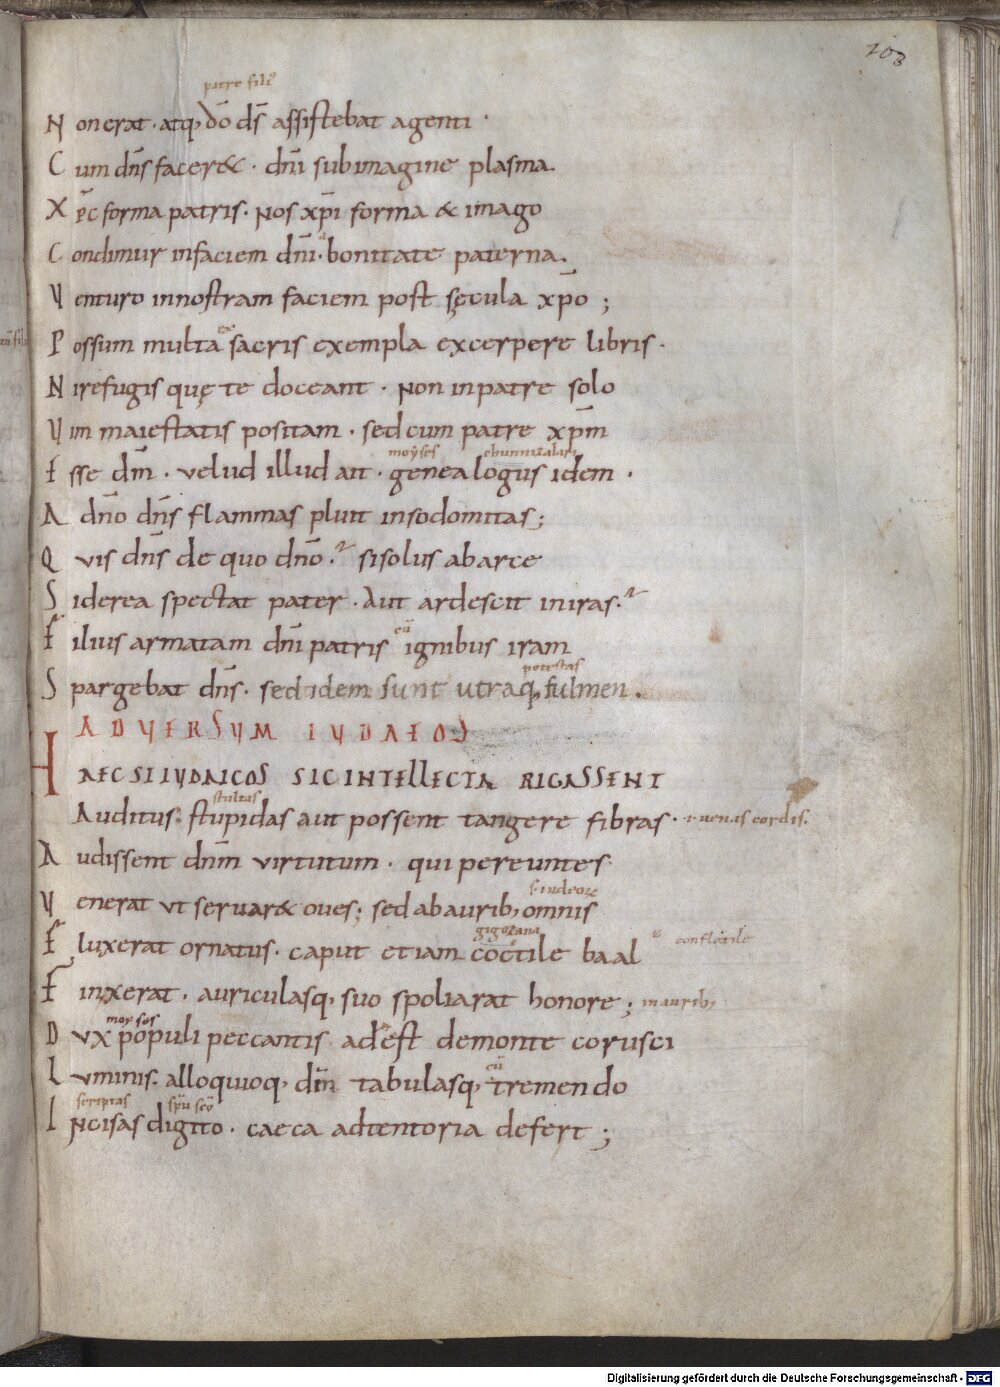 203
patre filiꝰ
Non erat · atq; dō d̄s assistebat agenti ·
Cum dn̄s facer& · dn̄i sub imagine plasma.
Xp̄c forma patris · Nos xp̄i forma & imago
Condimur infaciem dn̄i · bonitate paterna.
Venturo innostram faciem post sęcula xp̄o ;
ex
Possum multa sacris exempla excerpere libris ·
Ni refugis quę te doceant · Non inpatre solo
Vim maiestatis positam · sed cum patre xp̄m
moyses
Esse dm̄ · velud illud ait · genealogus idem ·
A dn̄o dn̄s flammas pluit insodomitas ;
Qvis dn̄s de quo dn̄o ? si solus abarce
Siderea spectat pater · Aut ardescit iniras ?
cū
Filius armatam dn̄i patris ignibus iram
potestas
Spargebat dn̄s · sed idem sunt utraq; fulmen .
ADVERSVM IVDAEOS
HAEC SI IVDAICOS SIC INTELLECTA RIGASSENT
stultas
Auditus : stupidas aut possent tangere fibras · ł venas cordis.
Audissent dn̄m virtutum · qui pereuntes
s. iudeorꝫ
Venerat vt seruar& oues ; sed abaurib; omnis
Fluxerat ornatus · caput etiam coctile baal conflatile
Finxerat · auriculasq; suo spoliarat honore ; inaurib;
moyses
Dvx populi peccantis adest demonte corusci
cū
Lvminis · alloquioq; dm̄ tabulasq; tremendo
scriptas sp̄u sc̄o
Incisas digito · caeca adtentoria defert ;
Digitalisierung gefördert durch die Deutsche Forschungsgemeinschaft - DFG